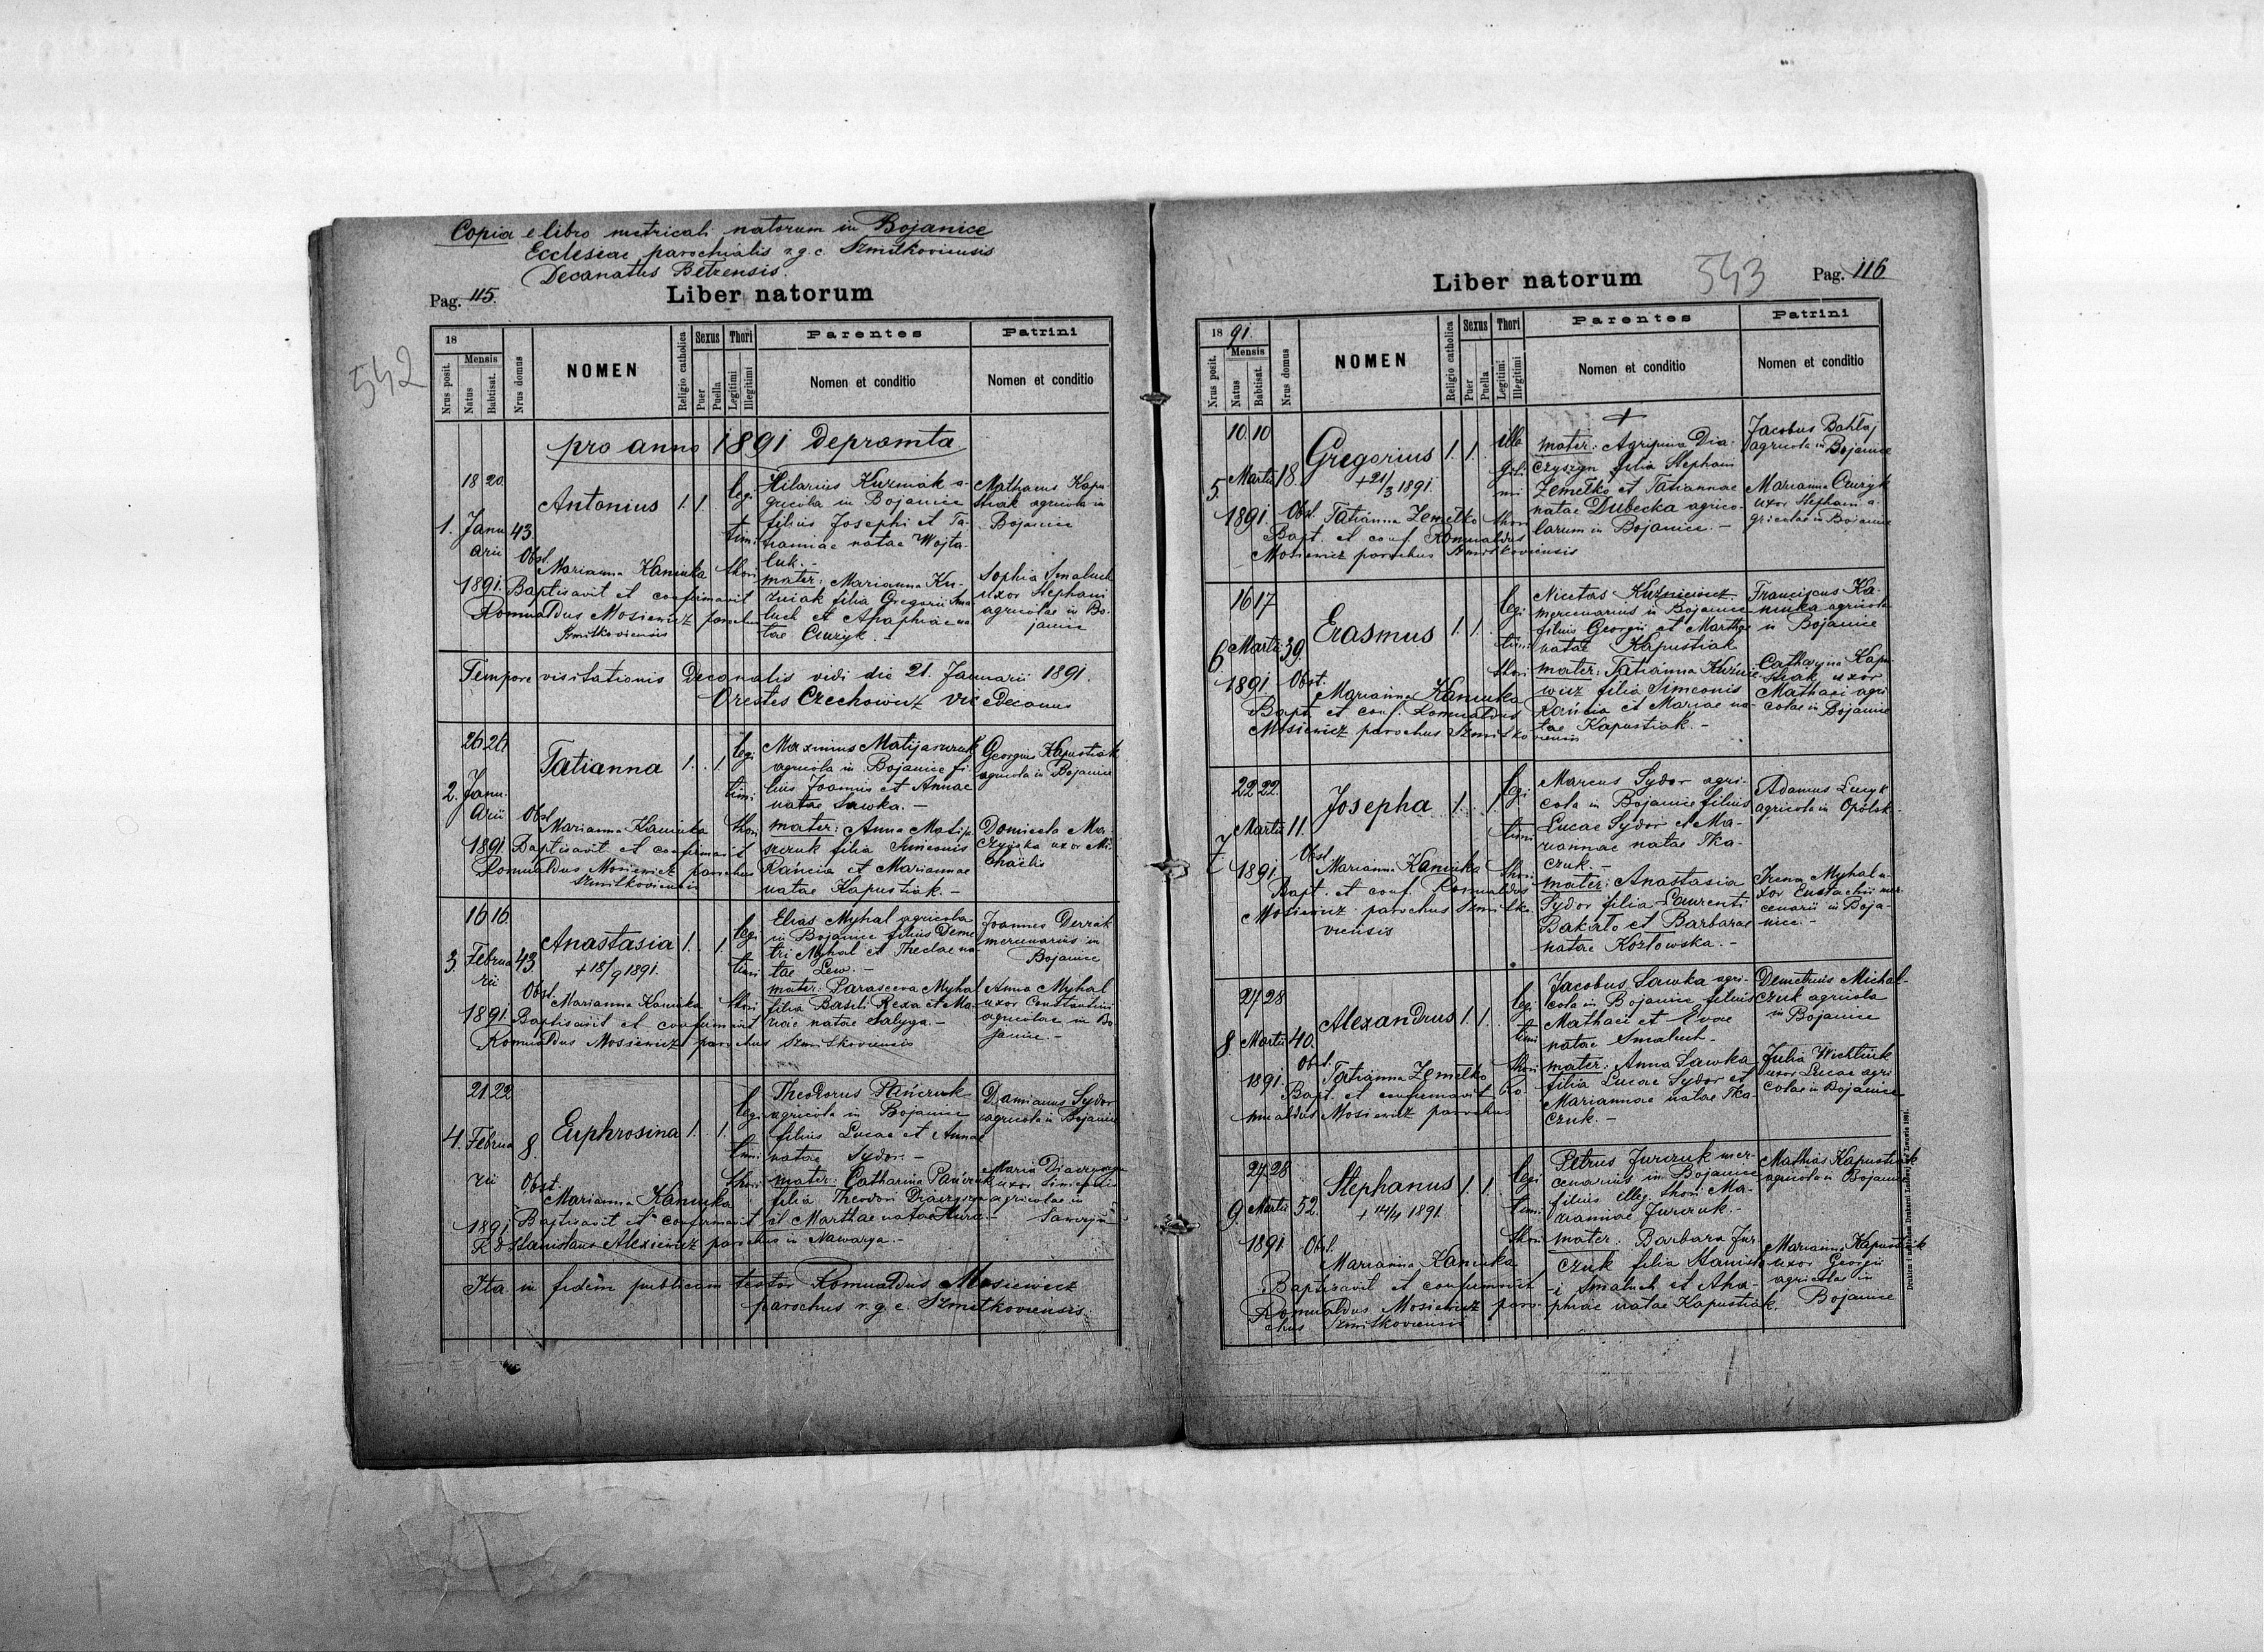 Copia e libro metricali natorum in Bojanice
Ecclesiae parochialis r.g.c. Szmitkoviensis
Decanatus Belzensis.
Pag. 115.
Liber natorum
542
18
Mensis
Nrus posit.
Natus
Babtisat.
Nrus domus
NOMEN
Religio catholica
Sexus
Puer
Puella
Thori
Legitimi
Illegitimi
Parentes
Nomen et conditio
Patrini
Nomen et conditio
pro anno 1891 depromta
1.
18 20
Januarii
1891
43
Antonius
1. 1.
legitimi
thori
Hilarius Kuzniak a-
gricola in Bojanice
filius Josephi et Ta-
natae Wojta-
luk. -
mater: Marianna Ku-
zniak filia Gregorii Sma-
luch et Agaphiae na-
tae Cruzyk. -
Mathaeus Kapu-
stiak agricola in
Bojanice
Sophia Smaluch
uxor Stephani
agricolae in Bo-
janice
Obst. Marianna Kaniuka
Baptisavit et confirmavit
Romualdus Mosiewicz parochus
Szmitkoviensis
Tempore visitationis Decanalis vidi die 21. Januarii 1891.
Orestes Czechowicz vice Decanus
2.
26 26
Januarii
1891
Tatianna
1. 1.
legitimi
thori
Maximus Matijaszczuk
agricola in Bojanice fi-
lius Joannis et Annae
natae Sawka. -
mater: Anna Matija-
szczuk filia Simeonis
Rańcia et Mariannae
natae Kapustiak. -
Georgius Kapustiak
agricola in Bojanice
uxor Mi-
chaëlis
Obst. Marianna Kaniuka
Baptisavit et confirmavit
Romualdus Mosiewicz parochus
Szmitkoviensis
3.
16 16
Februarii
1891
43
Anastasia
+ 18/9 1891.
1. 1.
legitimi
thori
Elias Myhal agricola
in Bojanice filius Deme-
tri Myhal et Theclae na-
tae Lew. -
mater: Parasceva Myhal
filia Basili Rexa et Ma-
riae natae Salyga. -
Joannes Derzak
mercenarius in
Bojanice
Anna Myhal
uxor Constantini
agricolae in Bo-
janice. -
Obst. Marianna Kaniuka
Baptisavit et confirmavit
Romualdus Mosiewicz parochus Szmitkoviensis
4.
21 22
Februarii
1891
8.
Euphrosina
1. 1.
legitimi
thori
Theodorus Pańczuk
agricola in Bojanice
filius Lucae et Annae
natae Sydor. -
mater: Catharina Pańczuk
filia Theodori Diaczyszyn
et Marthae natae Hura. -
Damianus Sydor
agricola in Bojanice
Maria Diaczyszyn
uxor Simeonis
agricolae in
Obst. Marianna Kaniuka
Baptisavit et confirmavit
R. D. Stanislaus Alexiewicz parochus in Nawarya. -
Ita in fidem publicam testor Romualdus Mosiewicz
parochus r. g. c. Szmitkoviensis.
543
Liber natorum
Pag. 116
1891.
Mensis
Nrus posit.
Natus
Babtisat.
Nrus domus
NOMEN
Religio catholica
Sexus
Puer
Puella
Thori
Legitimi
Illegitimi
Parentes
Nomen et conditio
Patrini
Nomen et conditio
5.
10. 10
Martii
1891
18.
Gregorius
+ 21/3 1891.
1. 1.
illegitimi
thori
+
mater: Agripina Dia-
czyszyn filia Stephani
Zemełko et Tatiannae
natae Dubecka agrico-
larum in Bojanice. -
Jacobus Bahlaj
agricola in Bojanice
Marianna Cruzyk
uxor Stephani a-
gricolae in Bojanice
Obst. Tatianna Zemełko
Bapt. et conf. Romualdus
Mosiewicz parochus Szmitkoviensis
6.
16 17
Martii
1891
39.
Erasmus
1. 1.
legitimi
thori
Nicetas Kuzniewicz
mercenarius in Bojanice
filius Georgii et Marthae
natae Kapustiak
mater: Tatianna Kuźnie-
wicz filia Simeonis
Rańcia et Mariae na-
tae Kapustiak. -
Franciscus Ka-
niuka agricola
in Bojanice
Catharina Kapu-
stiak uxor
Mathaei agri-
colae in Bojanice
Obst. Marianna Kaniuka
Bapt. et conf. Romualdus
Mosiewicz parochus Szmitkoviensis
7.
22 22
Martii
1891
11.
Josepha
1. 1.
legitimi
thori
Marcus Sydor agri-
cola in Bojanice filius
Lucae Sydor et Ma-
riannae natae Tka-
czuk. -
mater: Anastasia
Sydor filia Laurenti
Bakało et Barbarae
natae Kozłowska. -
Adamus Lucyk
agricola in Opólsk. -
Irena Myhal u-
xor Eustachii mer-
cenarii in Boja-
nice. -
Obst. Marianna Kaniuka
Bapt. et conf. Romualdus
Mosiewicz parochus Szmitko-
viensis
8.
27 28
Martii
1891.
40.
Alexandrus
1. 1.
legitimi
thori
Jacobus Sawka agri-
cola in Bojanice filius
Mathaei et Evae
natae Smaluch. -
mater: Anna Sawka
filia Lucae Sydor et
Mariannae natae Tka-
czuk. -
Demetrius Michal-
czuk agricola
in Bojanice
Julia Wichliuk
uxor Lucae agri-
colae in Bojanice
Obst. Tatianna Zemełko
Bapt. et confirmavit Ro-
mualdus Mosiewicz parochus
9.
27. 28
Martii
1891
52.
Stephanus
+ 14/4 1891.
1. 1.
legitimi
thori
Petrus Jurczuk mer-
cenarius in Bojanice
filius illeg. thori Ma-
riannae Jurczuk. -
mater: Barbara Jur-
czuk filia Stanisla-
i Smaluch et Aha-
phiae natae Kapustiak.
Mathias Kapustiak
agricola in Bojanice
Marianna Kapustiak
uxor Georgii
agricolae in
Bojanice
Obst. Marianna Kaniuka
Baptisavit et confirmavit
Romualdus Mosiewicz paro-
chus Szmitkoviensis